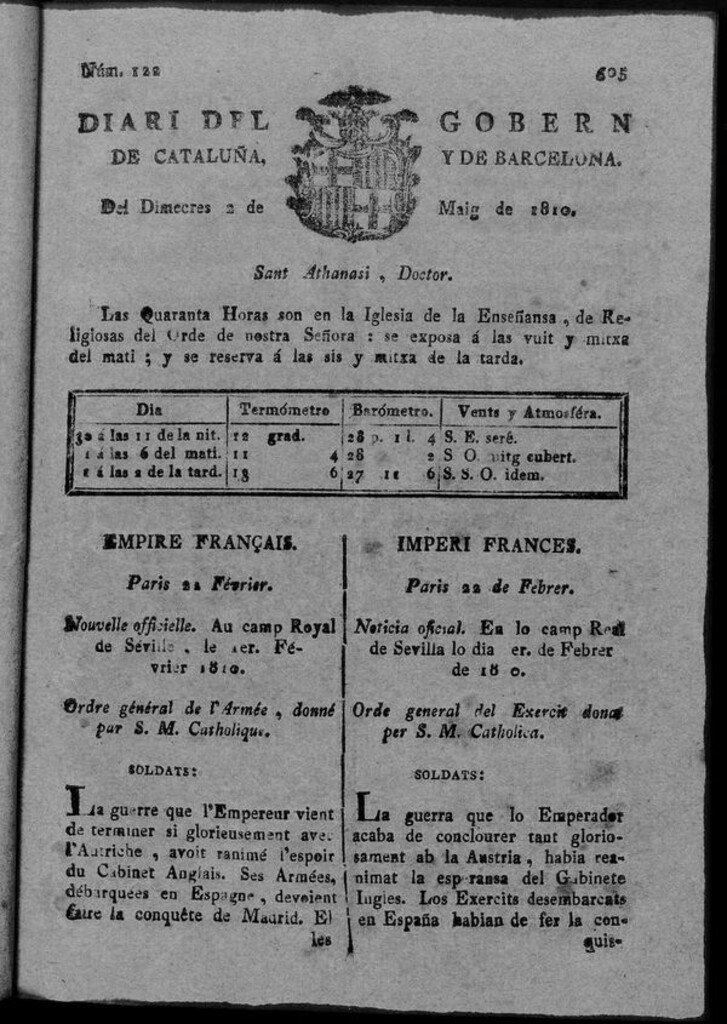 Núm. 122 605
DIARI DEL GOBERN
DE CATALUÑA, Y DE BARCELONA.
Del Dimecres 2 de Maig de 1810.
Sant Athanasi, Doctor.
Las Quaranta Horas son en la Iglesia de la Enseñansa, de Re-
ligiosas del Orde de nostra Señora : se exposa á las vuit y mitxa
del mati ; y se reserva á las sis y mitxa de la tarda.
Dia Termómetro Barómetro. Vents y Atmosféra.
30 á las 11 de la nit. 12 grad. 28 p. 1 l. 4 S. E. seré.
1 á las 6 del mati. 11 4 28 2 S O. mitg cubert.
1 á las 2 de la tard. 13 6 27 11 6 S. S. O. idem.
EMPIRE FRANÇAIS.
Paris 22 Février.
Nouvelle officielle. Au camp Royal
de Séville, le 1er. Fé-
vrier 1810.
Ordre général de l'Armée, donné
par S. M. Catholique.
SOLDATS:
La guerre que l'Empereur vient
de terminer si glorieusement avec
l'Autriche, avoit ranimé l'espoir
du Cabinet Anglais. Ses Armées,
débarquées en Espagne, devoient
faire la conquête de Madrid. El
les
IMPERI FRANCES.
Paris 22 de Febrer.
Noticia oficial. En lo camp Real
de Sevilla lo dia er. de Febrer
de 18 0.
Orde general del Exercit donat
per S. M. Catholica.
SOLDATS:
La guerra que lo Emperador
acaba de conclourer tant glorio-
sament ab la Austria, habia rea-
nimat la esperansa del Gabinete
Ingles. Los Exercits desembarcats
en España habian de fer la con-
quis-